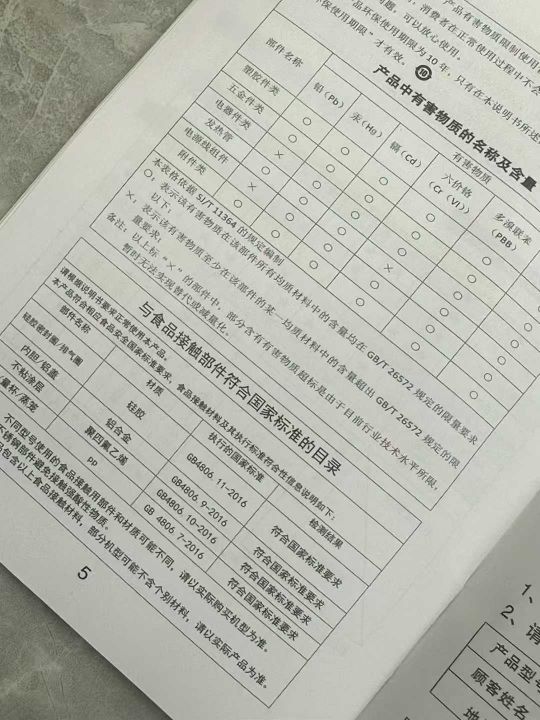 产品有害物质限制使用
消费者在正常使用过程中不会
问题，可以放心使用。
产品环保使用期限为10年，只有在本说明书所述
环保使用期限”才有效。 10
产品中有害物质的名称及含量
部件名称 有害物质
铅(Pb) 汞(Hg) 镉(Cd) 六价铬(Cr (VI)) 多溴联苯(PBB)
塑胶件类
五金件类
电器件类
发热管
电源线组件
附件类
本表格依据 SJ/T 11364 的规定编制
○：表示该有害物质在该部件所有均质材料中的含量均在 GB/T 26572 规定的限量要求
以下；
×：表示该有害物质至少在该部件的某一均质材料中的含量超出 GB/T 26572 规定的限
量要求；
备注：以上标“×”的部件中，部分含有有害物质超标是由于目前行业技术水平所限，
暂时无法实现替代或减量化。
与食品接触部件符合国家标准的目录
请根据说明书要求正常使用本产品。
本产品符合相应食品安全国家标准要求，食品接触材料及其执行标准符合性信息说明如下：
部件名称 材质 执行的国家标准 检测结果
硅胶密封圈/排气圈 硅胶 GB4806 11-2016 符合国家标准要求
内胆/铝盖 铝合金 GB4806 9-2016 符合国家标准要求
不粘涂层 聚四氟乙烯 GB4806 10-2016 符合国家标准要求
量杯/蒸笼 PP GB 4806 7-2016 符合国家标准要求
不同型号使用的食品接触用部件和材质可能不同，请以实际购买机型为准。
不锈钢部件避免接触强酸性物质。
包含以上食品接触材料，部分机型可能不含个别材料，请以实际产品为准。
5
1、
2、请
产品型号
顾客姓名
地